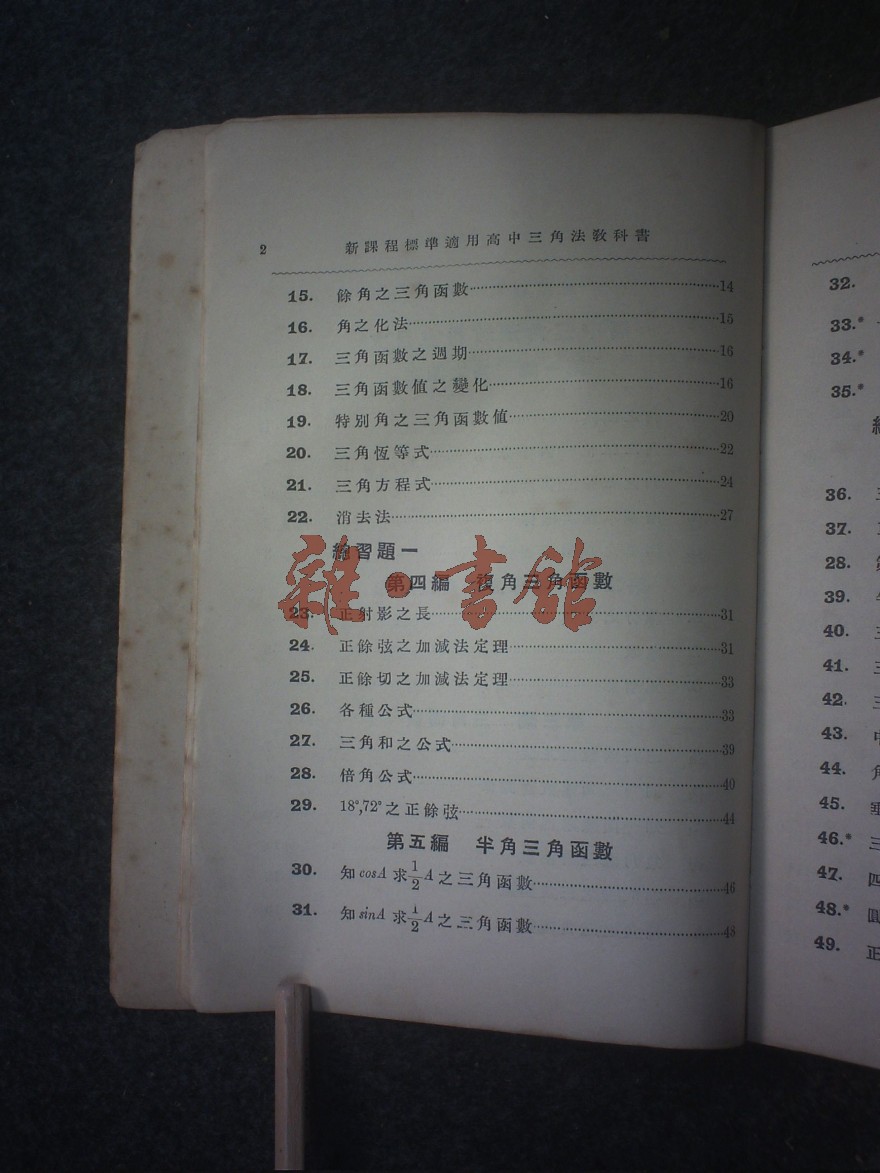 2 新課程標準適用高中三角法教科書
15. 餘角之三角函數 14
16. 角之化法 15
17. 三角函數之週期 16
18. 三角函數值之變化 16
19. 特別角之三角函數值 20
20. 三角恆等式 22
21. 三角方程式 24
22. 消去法 27
練習題一
第四編 複角三角函數
23. 正射影之長 31
24. 正餘弦之加減法定理 31
25. 正餘切之加減法定理 33
26. 各種公式 33
27. 三角和之公式 39
28. 倍角公式 40
29. 18°,72°之正餘弦 44
第五編 半角三角函數
30. 知cosA求½A之三角函數 46
31. 知sinA求½A之三角函數 48
雜·書館
32.
33.*
34.*
35.*
36.
37.
28.
39.
40.
41.
42.
43. 中
44. 角
45. 垂
46.* 三
47. 四
48.*
49. 正